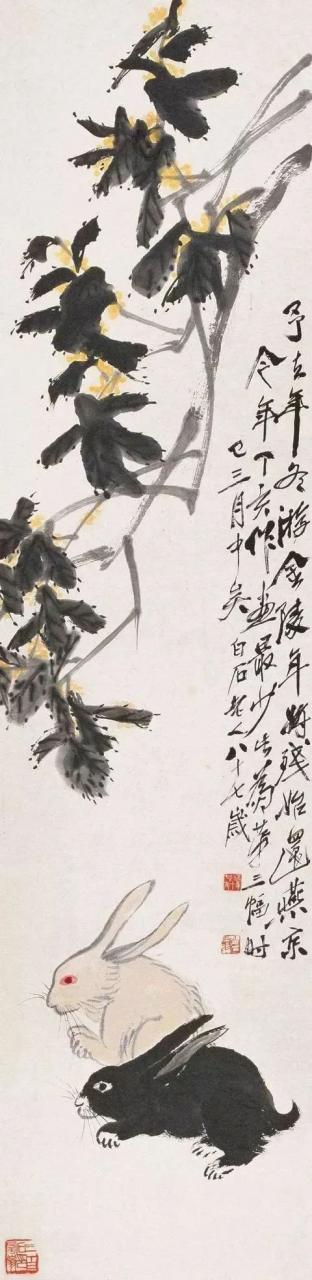 予去年冬游金陵年将残始還燕京
今年丁亥作画最少此为第三幅时
已三月中矣白石老人八十七歲